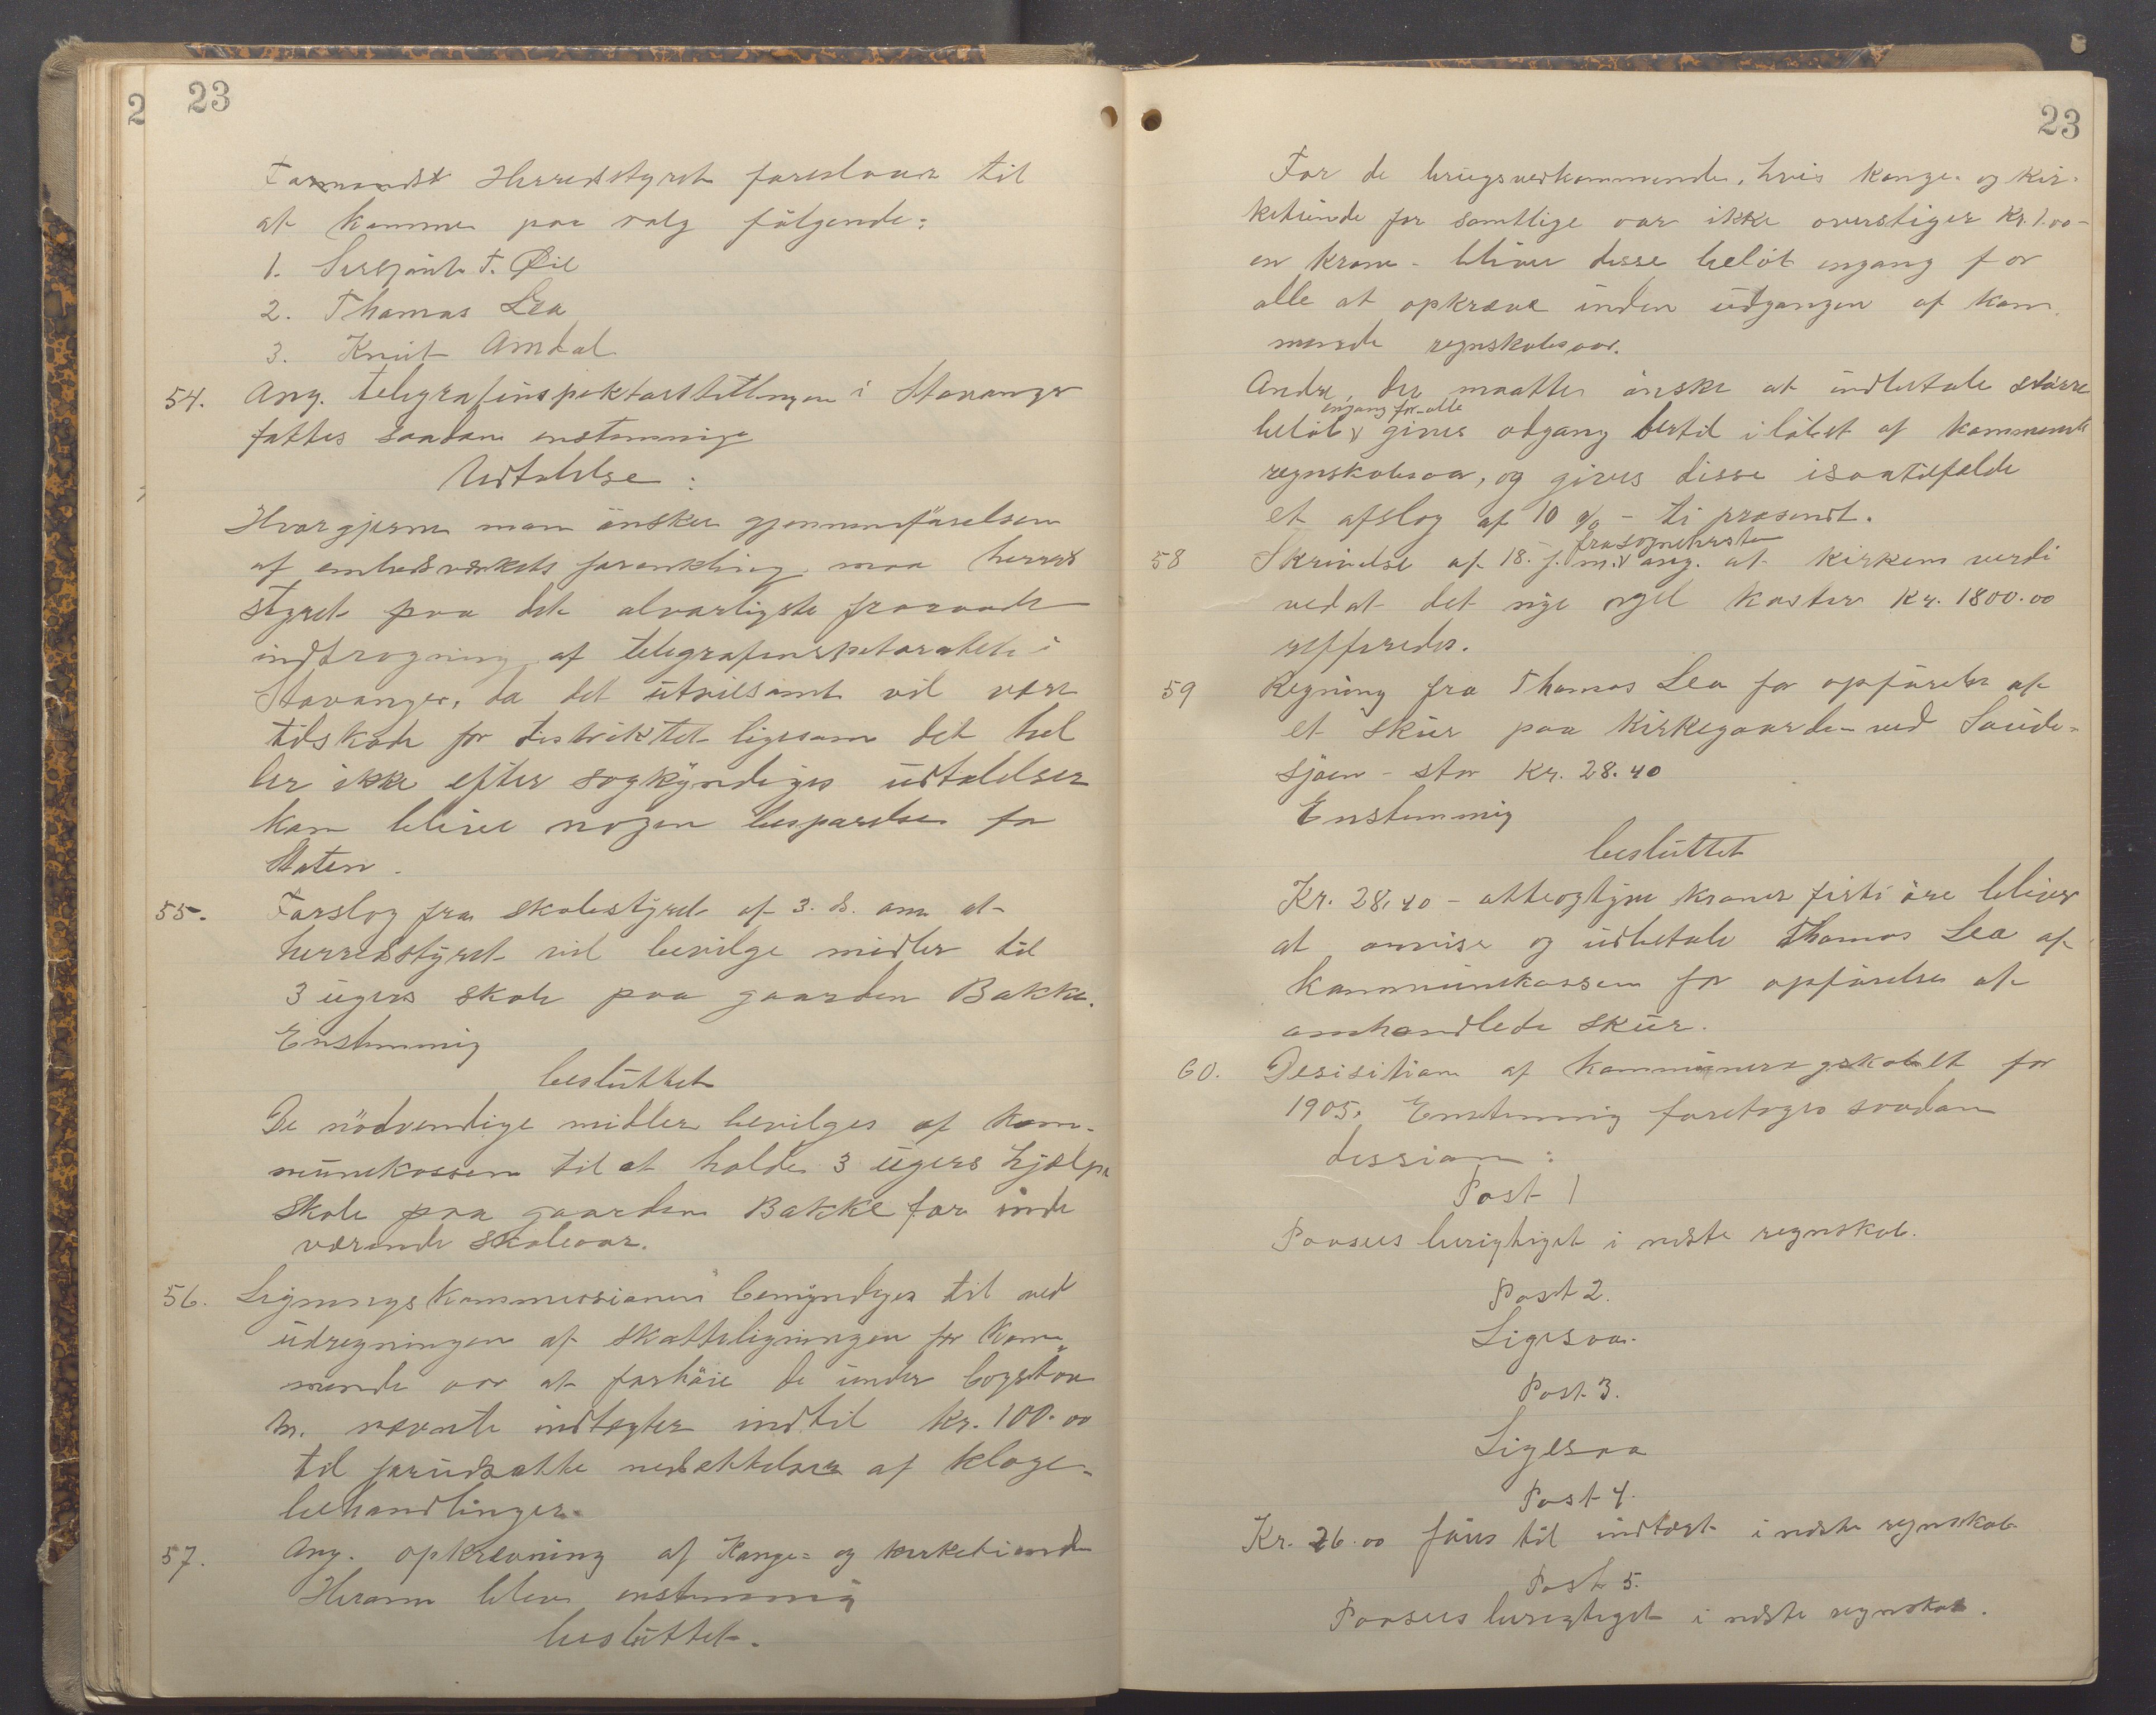 2 23
Formandst Herredsstyret foreslaaes til
at komme paa valg følgende:
1. Sersjant T. Øie
2. Thomas Lea
3. Knut Amdal
54. Ang. telegrafinspektørstillingen i Stavanger
fattes saadan enstemmige
Udtalelse:
Hvor gjerne man ønsker gjennemførelsen
af embedsverkets forenkling, maa herreds
styret paa det alvorligste fraraade
inddragning af telegrafinspektoratet i
Stavanger, da det utvilsomt vil være
tilskade for distriktet ligesom det hel
ler ikke efter sagkyndiges udtalelser
kan blive nogen besparelse for
Staten.
55. Forslag fra skolestyret af 3. ds. om at
herredsstyret vil bevilge midler til
3 ugers skole paa gaarden Bakke.
Enstemmig
besluttet
De nødvendige midler bevilges af kom-
munekassen til at holde 3 ugers hjælpe
skole paa gaarden Bakke for inde
værende skoleaar.
56. Ligningskommissionen bemyndiges til ved
udregningen af skatteligningen for kom-
mende aar at forhøie de under bogstav
m. nævnte indtægter indtil kr. 100.00
til forudsatte nedsættelser af klage-
behandlinger.
57. Ang. opkrævning af Konge- og kirketiende
Herom blev enstemmig
besluttet.
23
For de brugsvedkommende, hvis konge- og kir-
ketiende for samtlige aar ikke overstiger Kr. 1.00 -
en krone - bliver disse beløb engang for
alle at opkræve inden udgangen af kom
mende regnskabsaar.
Andre, der maatte ønske at indbetale større
beløb engang for alle gives adgang dertil i løbet af kommende
regnskabsaar, og gives disse isaatilfælde
et afslag af 10 % - ti prosendt.
58 Skrivelse af 18. f. m. fra sognepresten ang. at kirkens verdi
ved at det nye orgel koster Kr. 1800.00
refferedes.
59 Regning fra Thomas Lea for opførelse af
et skur paa Kirkegaarden ved Saude-
sjøen - stor Kr. 28.40
Enstemmig
besluttet
Kr. 28,40 - otteogtyve kroner firti øre bliver
at anvise og udbetale Thomas Lea af
kommunekassen for opførelse af
omhandlede skur.
60. Desisition af kommuneregnskabet for
1905. Enstemmig foretoges saadan
dession:
Post 1
Paasees berigtiget i neste regnskab.
Post 2.
Ligesaa.
Post 3.
Ligesaa
Post 4.
Kr. 26.00 føres til indtægt i neste regnskab
Post 5.
Paasees berigtiget i neste regnskab.